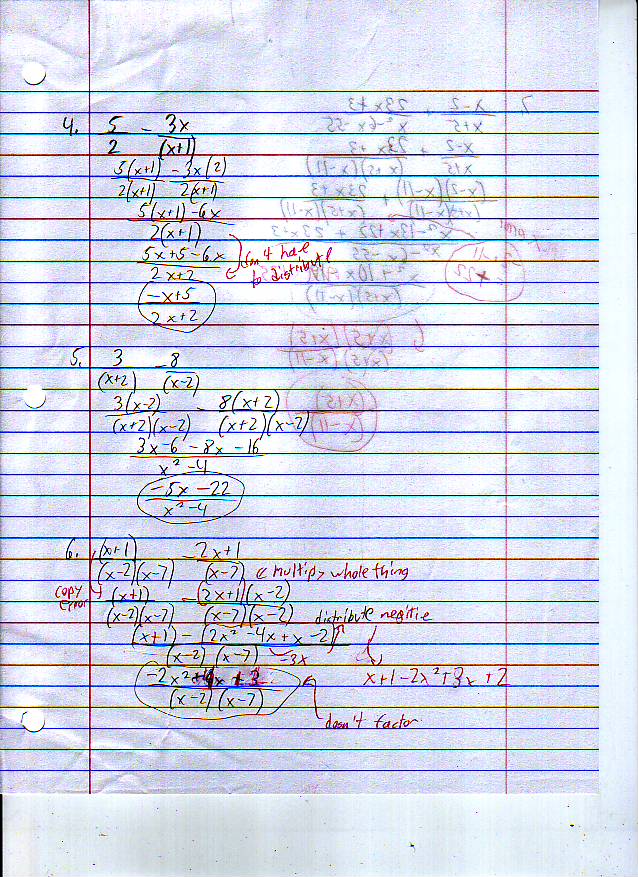 4. 5/2 - 3x/(x+1)
5(x+1)/2(x+1) - 3x(2)/2(x+1)
5(x+1)-6x/2(x+1)
5x+5-6x/2x+2 don't have to distribute
-x+5/2x+2
5. 3/(x+2) - 8/(x-2)
3(x-2)/(x+2)(x-2) - 8(x+2)/(x+2)(x-2)
3x-6-8x-16/x²-4
-5x-22/x²-4
6. (x+1)/(x-2)(x-7) - 2x+1/(x-7) multiply whole thing
copy error (x+1)/(x-2)(x-7) - (2x+1)(x-2)/(x-7)(x-2) distribute negitie
(x+1)-(2x²-4x+x-2)/(x-2)(x-7) -3x
x+1-2x²+3x+2
-2x²+4x+3/(x-2)(x-7)
doesn't factor